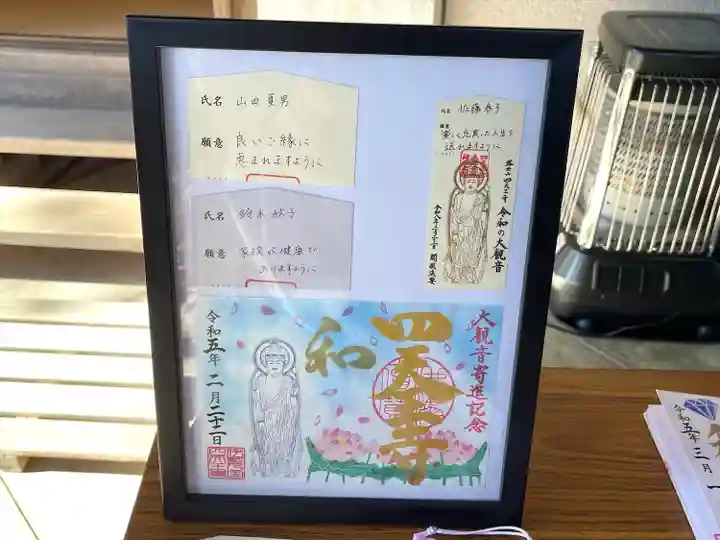 氏名 山田 夏男
願意 良いご縁に
恵まれますように
氏名 鈴木 秋子
願意 家族が健康で
ありますように
氏名 佐藤 春子
願意
楽しく充実した人生を
送れますように
塔世山 四天王寺
令和の大観音
開眼法要
大観音寄進記念
四天王寺
和
令和五年二月二十二日
令和五年三月一